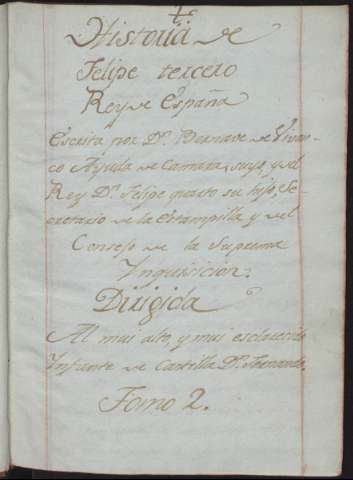 Historia de
Felipe tercero
Rey de España
Escrita por Dn. Bernave de Vivan-
co Ayuda de Camara, suyo, y del
Rey Dn. Felipe quarto su hijo, Se
cretario de la Estampilla y del
Consejo de la Suprema
Inquisicion.
Dirigida
Al mui alto, y mui esclarecido
Infante de Castilla Dn. Fernando.
Tomo 2.